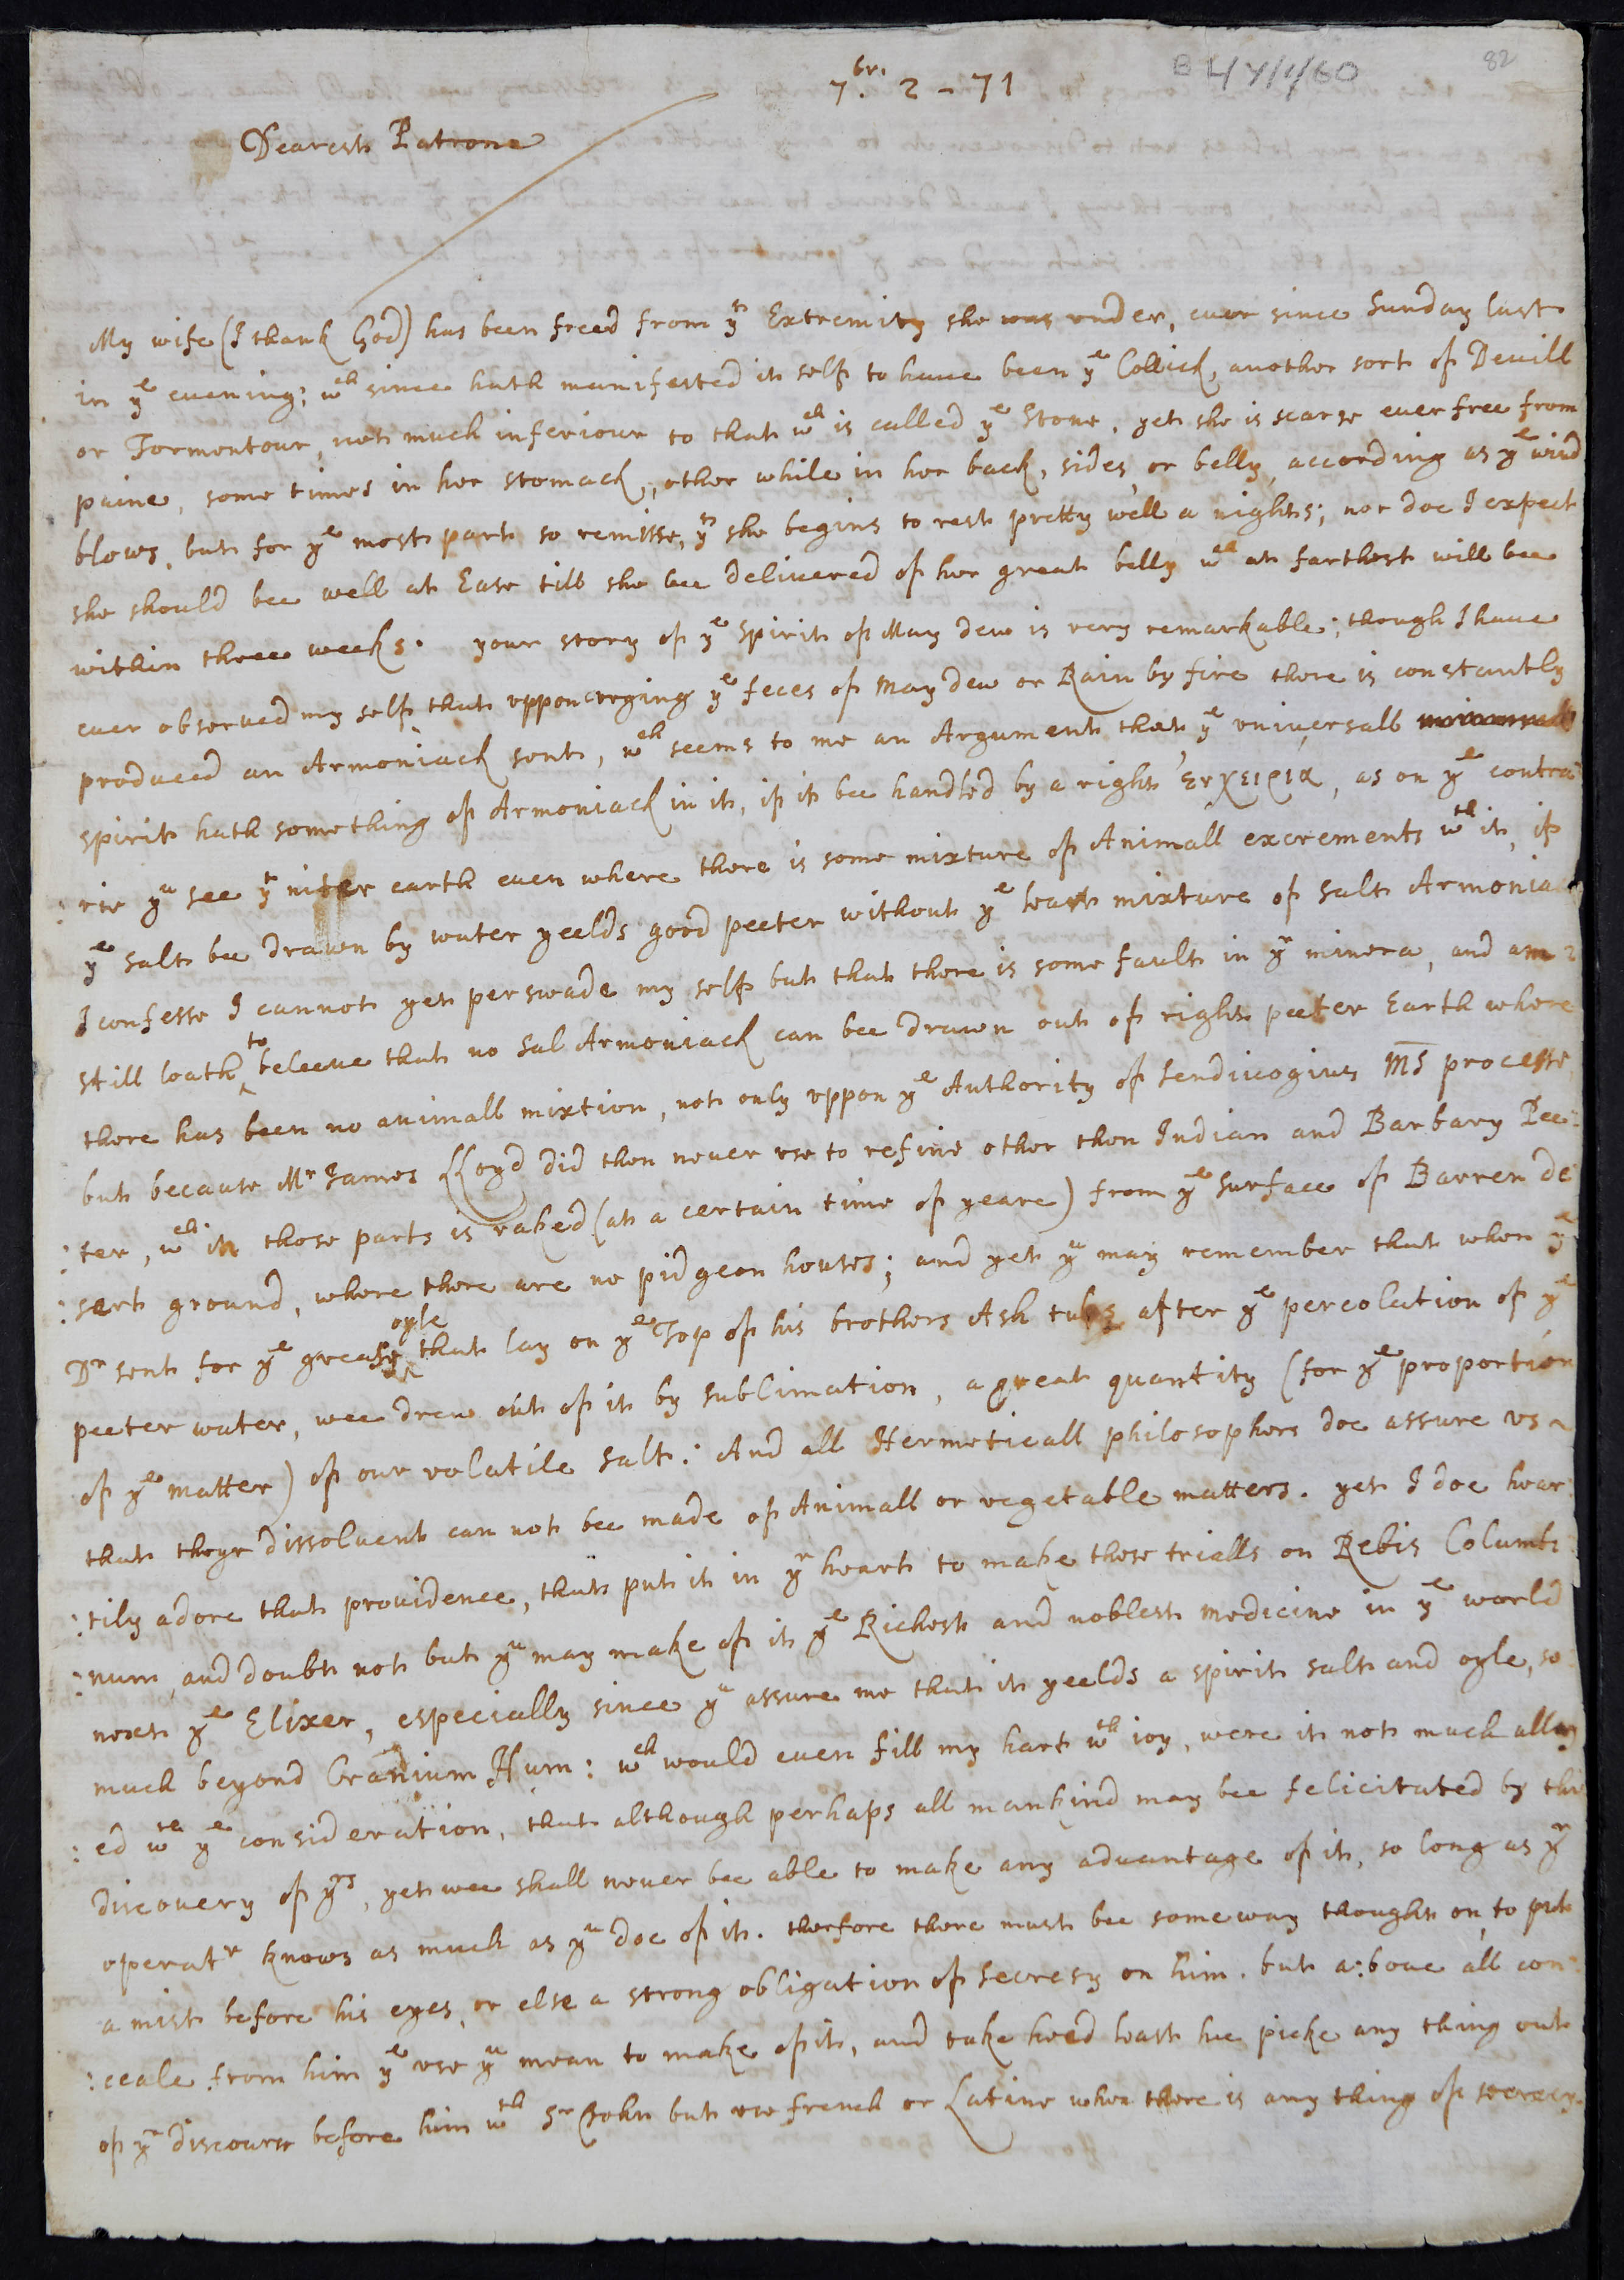 7br. 2 - 71
B L 4 Y/1/60
82
Dearest Patrone
My wife (I thank God) has been freed from yt Extremity she was vnder, euer since Sunday last
in ye euening; wch since hath manifested it self to haue been ye Collick, another sort of Deuill
or Tormentour, not much inferiour to that wch is called ye Stone, yet she is scarse euer free from
paine, some times in her stomack, other while in her back, sides, or belly, according as ye wind
blows, but for ye most part so remisse, yt she begins to rest pretty well a nights; nor doe I expect
she should bee well at Ease till she bee deliuered of her great belly wch at farthest will bee
within three weeks. your story of ye spirit of May dew is very remarkable; though I haue
euer obserued my self that vppon vrging ye feces of May dew or Rain by fire there is constantly
produced an Armoniack sent, wch seems to me an Argument that ye vniuersall
spirit hath something of Armoniack in it, if it bee handled by a right ἐγχειρια, as on ye contra
:rie yu see yr niter earth euen where there is some mixture of Animall excrements wth it, if
ye salt bee drawn by water yeelds good peeter without ye least mixture of salt Armoniack
I confesse I cannot yet perswade my self but that there is some fault in yr minera, and am
still loath to beleeue that no sal Armoniack can bee drawn out of right peeter Earth where
there has been no animall mixtion, not only vppon ye Authority of Sendiuogius MS processe
but because Mr James Lloyd did then neuer vse to refine other then Indian and Barbary Pee:
:ter, wch in those parts is raked (at a certain time of yeare) from ye surface of Barren de
:sert ground, where there are no pidgeon houses; and yet yu may remember that when ye
Dr sent for ye greasy oyle that lay on ye Top of his brothers Ash tubs after ye percolation of ye
peeter water, wee drew out of it by sublimation, a great quantity (for ye proportion
of ye matter) of our volatile salt: And all Hermeticall philosophers doe assure vs
that theyr dissoluent can not bee made of Animall or vegetable matters. yet I doe hear
:tily adore that prouidence, that put it in yr heart to make these trialls on Rebis Columbi
:num, and doubt not but yu may make of it ye Richest and noblest medicine in ye world
next ye Elixer, especially since yu assure me that it yeelds a spirit salt and oyle, so
much beyond Cranium Hum: wch would euen fill my hart wth ioy, were it not much allay
:ed wth ye consideration, that although perhaps all mankind may bee felicitated by the
discouery of ys, yet wee shall neuer bee able to make any aduantage of it, so long as yr
operatr knows as much as yu doe of it. therfore there must bee some way thought on, to put
a mist before his eyes, or else a strong obligation of secresy on him. but a:boue all con
:ceale from him ye vse yu mean to make of it, and take heed least hee picke any thing out
of yr discourse before him wth Sr John but vse french or Latine when there is any thing of secrecy.